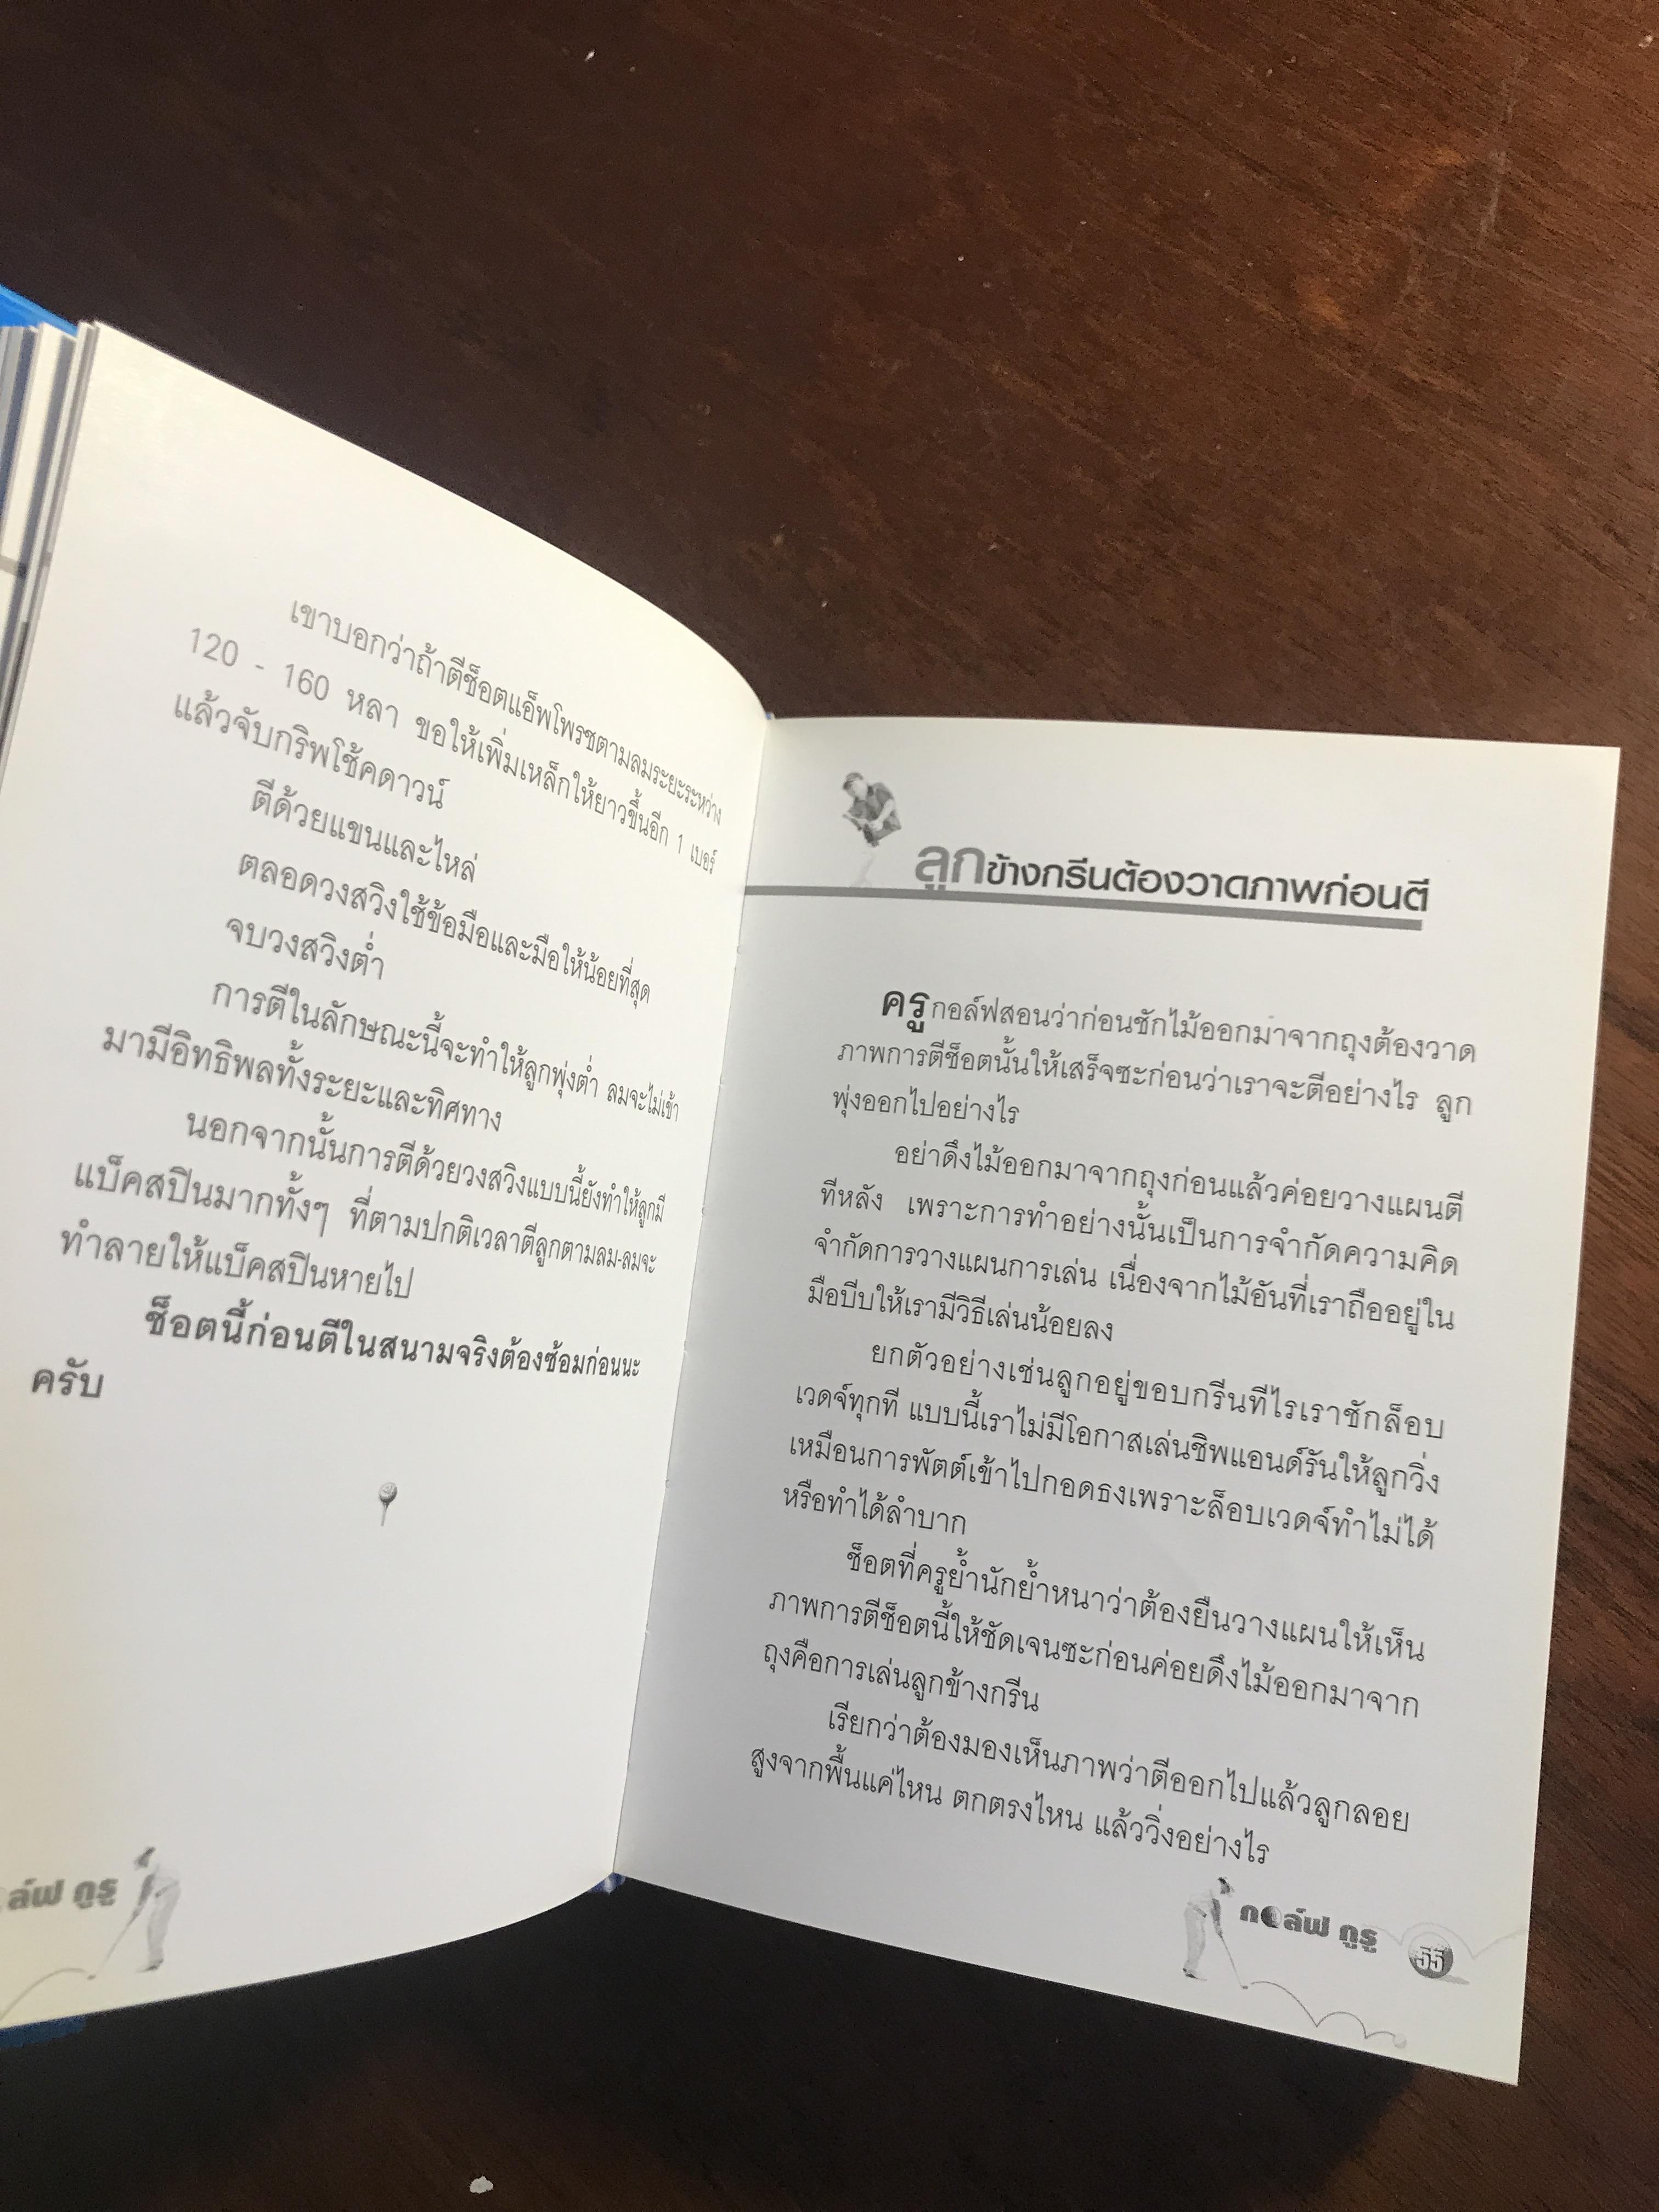 เขาบอกว่าถ้าตีช็อตแอ็พโพรชตามลมระยะระหว่าง
120 - 160 หลา ขอให้เพิ่มเหล็กให้ยาวขึ้นอีก 1 เบอร์
แล้วจับกริพโช้คดาวน์
ตีด้วยแขนและไหล่
ตลอดวงสวิงใช้ข้อมือและมือให้น้อยที่สุด
จบวงสวิงต่ำ
การตีในลักษณะนี้จะทำให้ลูกพุ่งต่ำ ลมจะไม่เข้า
มามีอิทธิพลทั้งระยะและทิศทาง
นอกจากนั้นการตีด้วยวงสวิงแบบนี้ยังทำให้ลูกมี
แบ็คสปินมากทั้งๆ ที่ตามปกติเวลาตีลูกตามลม-ลมจะ
ทำลายให้แบ็คสปินหายไป
ช็อตนี้ก่อนตีในสนามจริงต้องซ้อมก่อนนะ
ครับ
ล์ฟ กูรู
ลูกข้างกรีนต้องวาดภาพก่อนตี
ครูกอล์ฟสอนว่าก่อนชักไม้ออกมาจากถุงต้องวาด
ภาพการตีช็อตนั้นให้เสร็จซะก่อนว่าเราจะตีอย่างไร ลูก
พุ่งออกไปอย่างไร
อย่าดึงไม้ออกมาจากถุงก่อนแล้วค่อยวางแผนตี
ทีหลัง เพราะการทำอย่างนั้นเป็นการจำกัดความคิด
จำกัดการวางแผนการเล่น เนื่องจากไม้อันที่เราถืออยู่ใน
มือบีบให้เรามีวิธีเล่นน้อยลง
ยกตัวอย่างเช่นลูกอยู่ขอบกรีนทีไรเราชักล็อบ
เวดจ์ทุกที แบบนี้เราไม่มีโอกาสเล่นชิพแอนด์รันให้ลูกวิ่ง
เหมือนการพัตต์เข้าไปกอดธงเพราะล็อบเวดจ์ทำไม่ได้
หรือทำได้ลำบาก
ช็อตที่ครูย้ำนักย้ำหนาว่าต้องยืนวางแผนให้เห็น
ภาพการตีช็อตนี้ให้ชัดเจนซะก่อนค่อยดึงไม้ออกมาจาก
ถุงคือการเล่นลูกข้างกรีน
เรียกว่าต้องมองเห็นภาพว่าตีออกไปแล้วลูกลอย
สูงจากพื้นแค่ไหน ตกตรงไหน แล้ววิ่งอย่างไร
กอล์ฟ กูรู
55